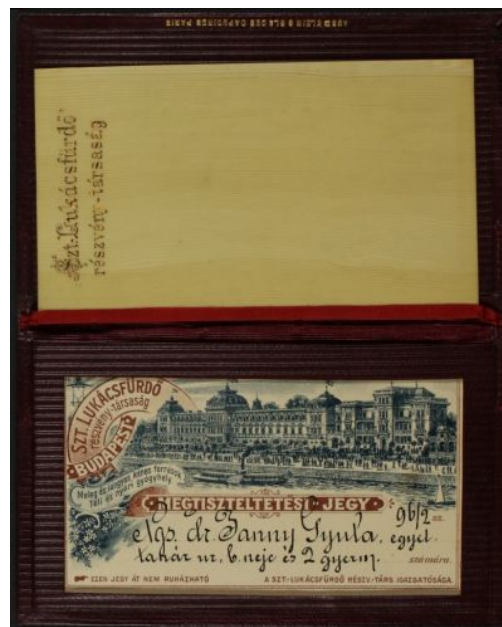 AUG KLEIN 6 BLD DES CAPUCINES PARIS
Szt-Lukácsfürdő
részvény-társaság
SZT. LUKÁCSFÜRDŐ
részvény-társaság
BUDAPEST
Meleg és langyos kénes források
Téli és nyári gyógyhely
MEGTISZTELTETÉSI JEGY
96/2 sz.
Ngs. dr. Janny Gyula, egyet.
tanár ur, b. neje és 2 gyerm. számára.
EZEN JEGY ÁT NEM RUHÁZHATÓ
A SZT-LUKÁCSFÜRDŐ RÉSZV.-TÁRS. IGAZGATÓSÁGA.